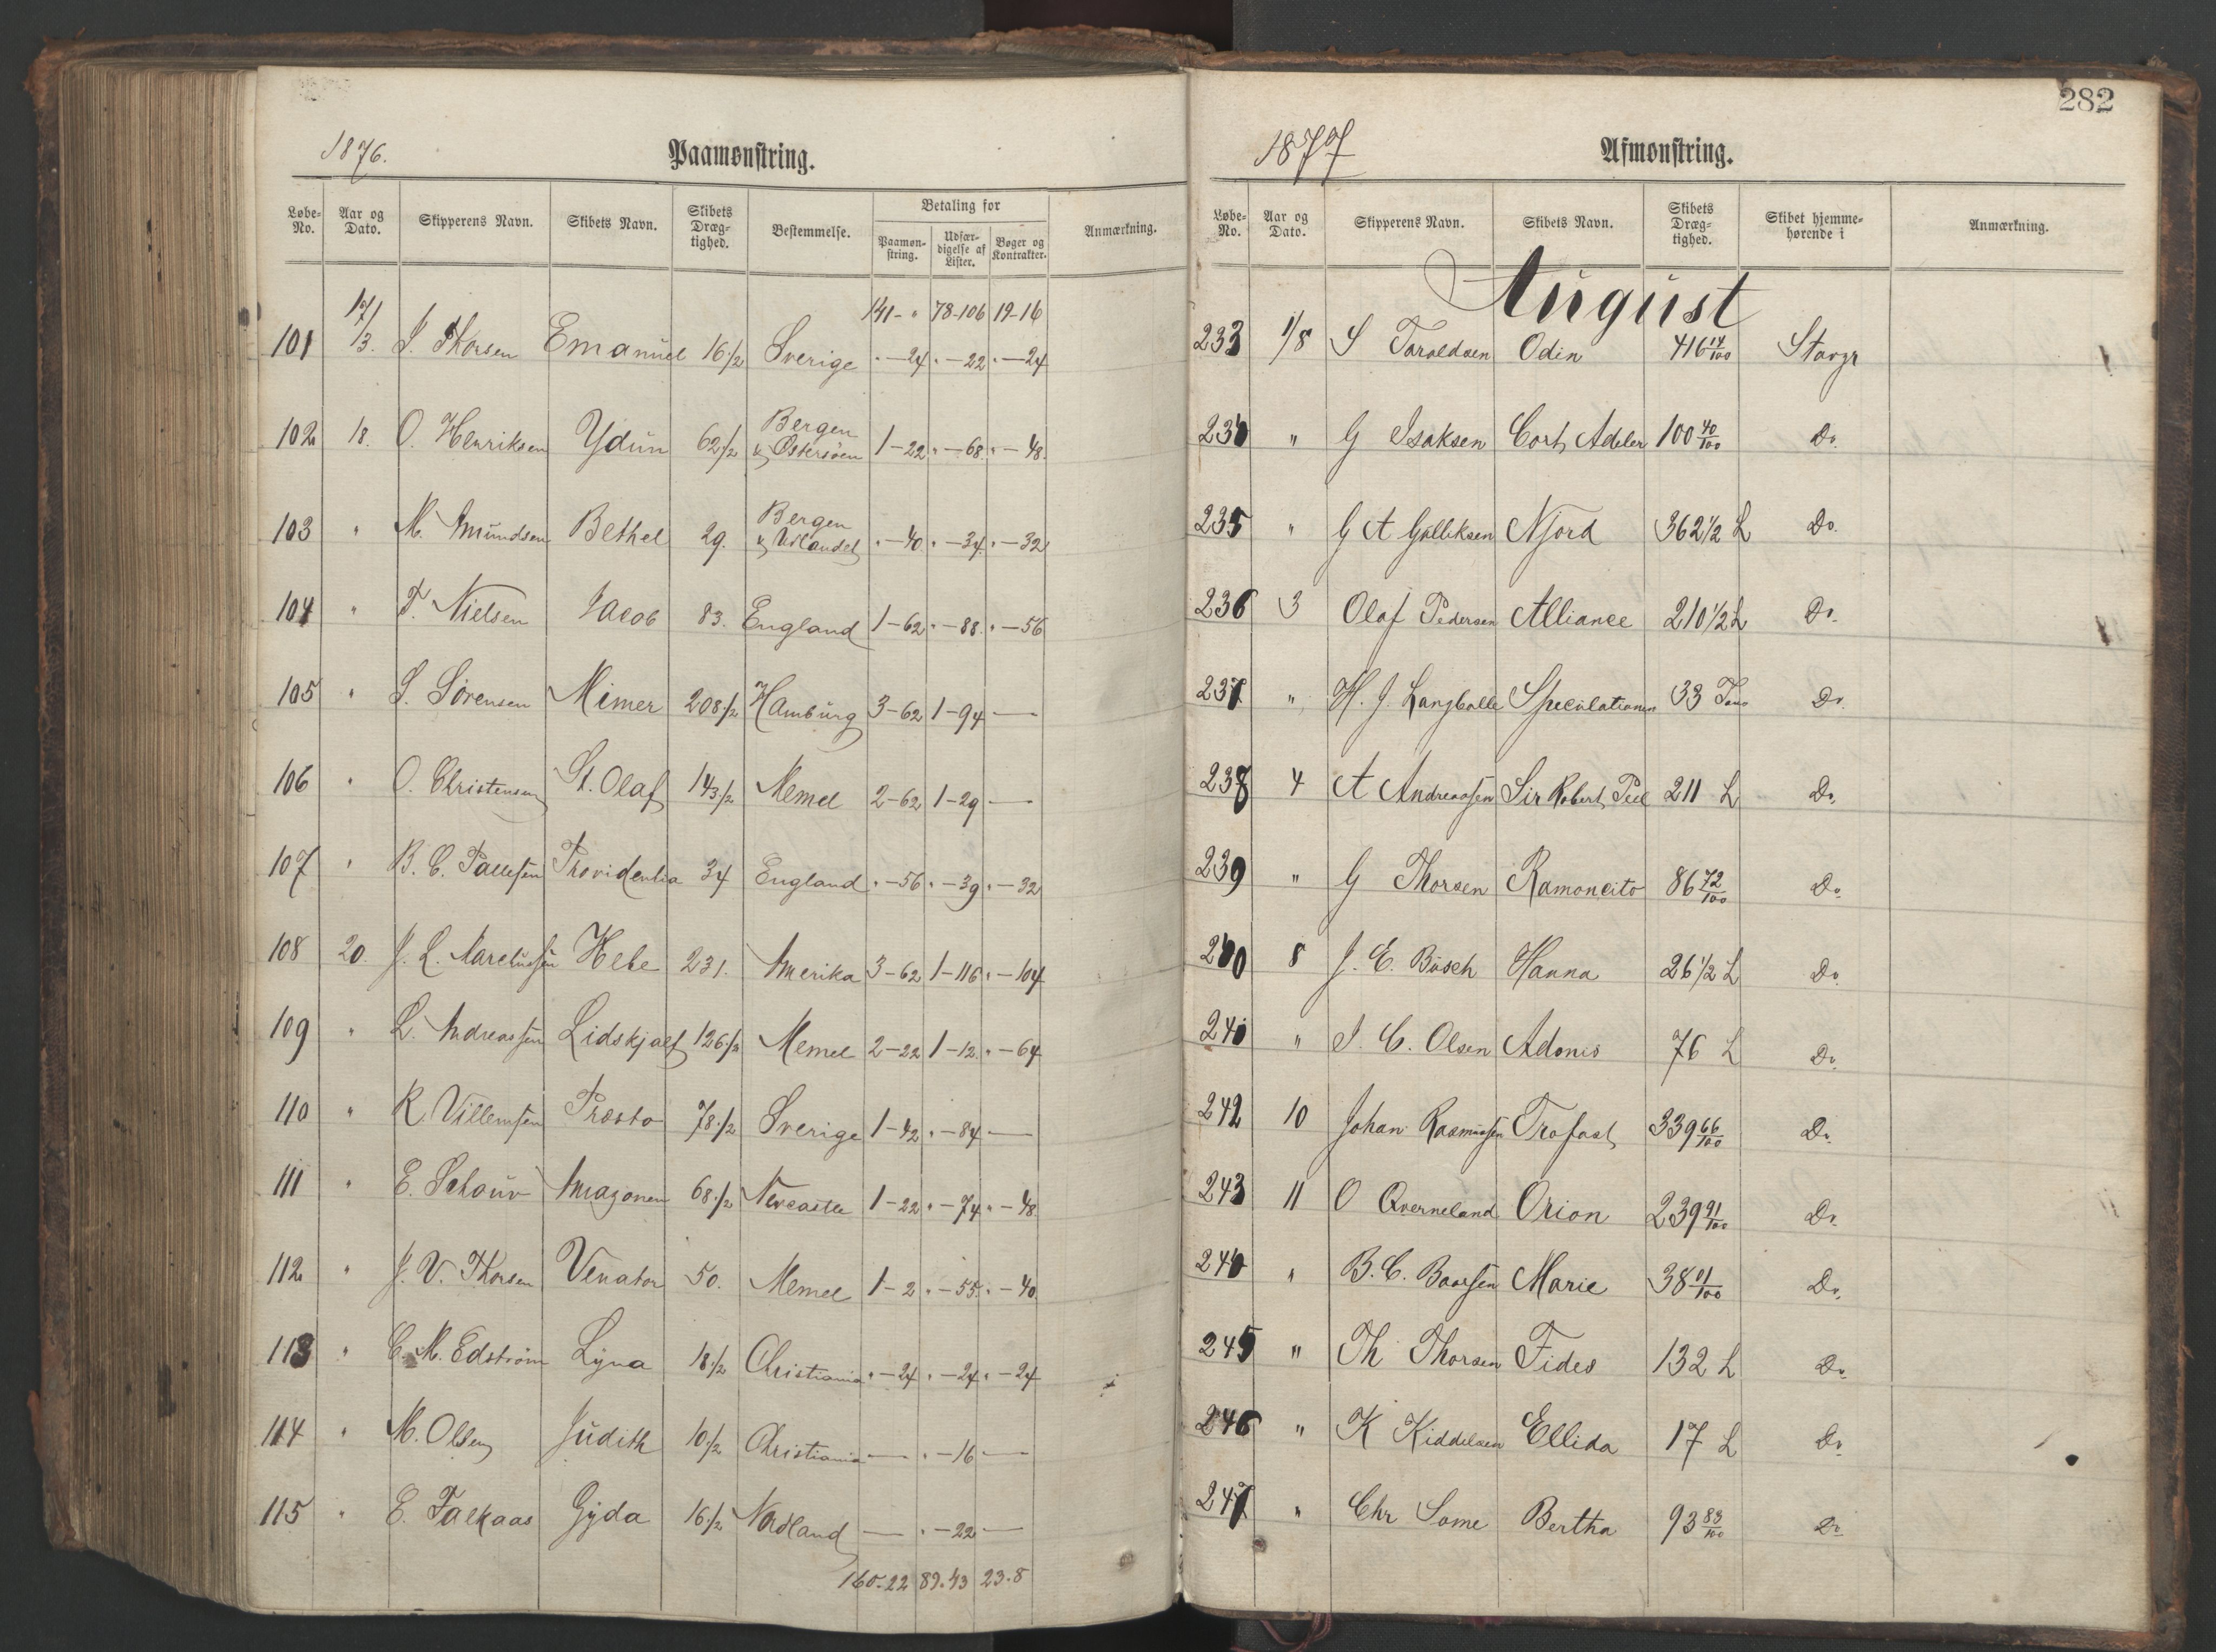 1876.
Paamønstring.
Løbe-No. Aar og Dato. Skipperens Navn. Skibets Navn. Skibets Dræg-tighed. Bestemmelse. Betaling for Paamøn-string. Udfær-digelse af Lister. Bøger og Kontrakter. Anmærkning.
141 - " 78-106 19-16
101 17/3. J. Thorsen Emanuel 16 1/2 Sverige " - 24 " - 22 " - 24
102 18. O. Henriksen Ydun 62 1/2 Bergen & Østersöen 1 - 22 " - 68. " - 48.
103 " M. Amundsen Bethel 29. Bergen & Udlandet " - 40. " - 34. " - 32
104 " T. Nielsen Jacob 83. England 1 - 62 " - 88. " - 56
105 " S. Sörensen Mimer 208 1/2 Hamburg 3 - 62 1 - 94 —
106 " O. Christensen St. Olaf 143 1/2 Memel 2 - 62 1 - 29 —
107 " B. C. Pallesen Providentia 34 England " - 56 " - 39 " - 32
108 20. J. L. Hebe 231. Amerika 3 - 62 1 - 116 " - 104
109 " L. Andreassen Lidskjalf 126 1/2 Memel 2 - 22 1 - 12. " - 64
110 " R. Villemsen Præsto 78 1/2 Sverige 1 - 42 " - 84 —
111 " E. Schouv Amazonen 68 1/2 Newcastle 1 - 22 " - 74. " - 48
112 " J. V. Thorsen Venator 50. Memel 1 - 2 " - 55. " - 40
113 " C. M. Edström Lyna 18 1/2 Christiania " - 24 " - 24 " - 24
114 " M. Olsen Judith 10 1/2 Christiania — " - 16 —
115 " E. Falkaas Gyda 16 1/2 Nordland — " - 22 —
160-22 89-43 23-8
282
1877
Afmønstring.
Løbe-No. Aar og Dato. Skipperens Navn. Skibets Navn. Skibets Dræg-tighed. Skibet hjemme-hørende i Anmærkning.
August
233 1/8 S Taroldsen Odin 416 14/100 Stavgr
234 " G Isaksen Cort Adeler 100 40/100 Do.
235 " G A Gulliksen Njord 362 1/2 L Do.
236 3 Olaf Pedersen Alliance 210 1/2 L Do.
237 " H. J. Langballe Speculationen 33 Tons Do.
238 4 A Andreassen Sir Robert Peel 211 L Do.
239 " G Thorsen Ramoncito 86 72/100 Do.
240 8 J. E. Büsch Hanna 26 1/2 L Do.
241 " J. C. Olsen Adonis 76 L Do.
242 10 Johan Rasmussen Trofast 339 66/100 Do.
243 11 O Qverneland Orion 239 91/100 Do.
244 " B. C. Baarsen Marie 38 01/100 Do.
245 " Th Thorsen Fides 132 L Do.
246 " K Kiddelsen Ellida 17 L Do.
247 " Chr Some Bertha 93 83/100 Do.